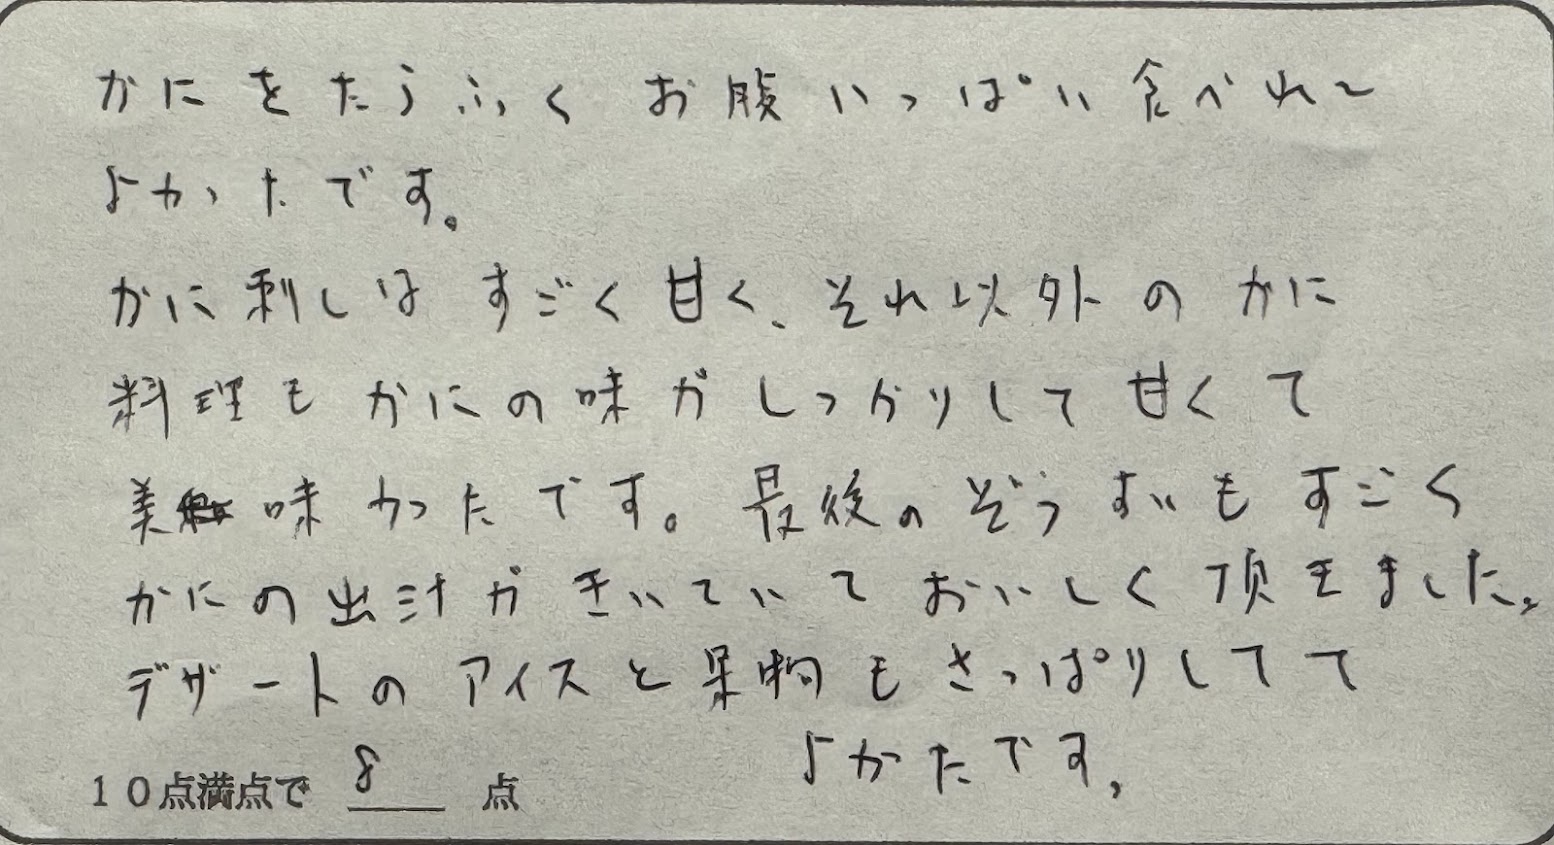 かにをたらふくお腹いっぱい食べれて
よかったです。
かに刺しはすごく甘く、それ以外のかに
料理もかにの味がしっかりして甘くて
美味かったです。最後のぞうすいもすごく
かにの出汁がきいていておいしく頂きました。
デザートのアイスと果物もさっぱりしてて
よかたです。
10点満点で 8 点